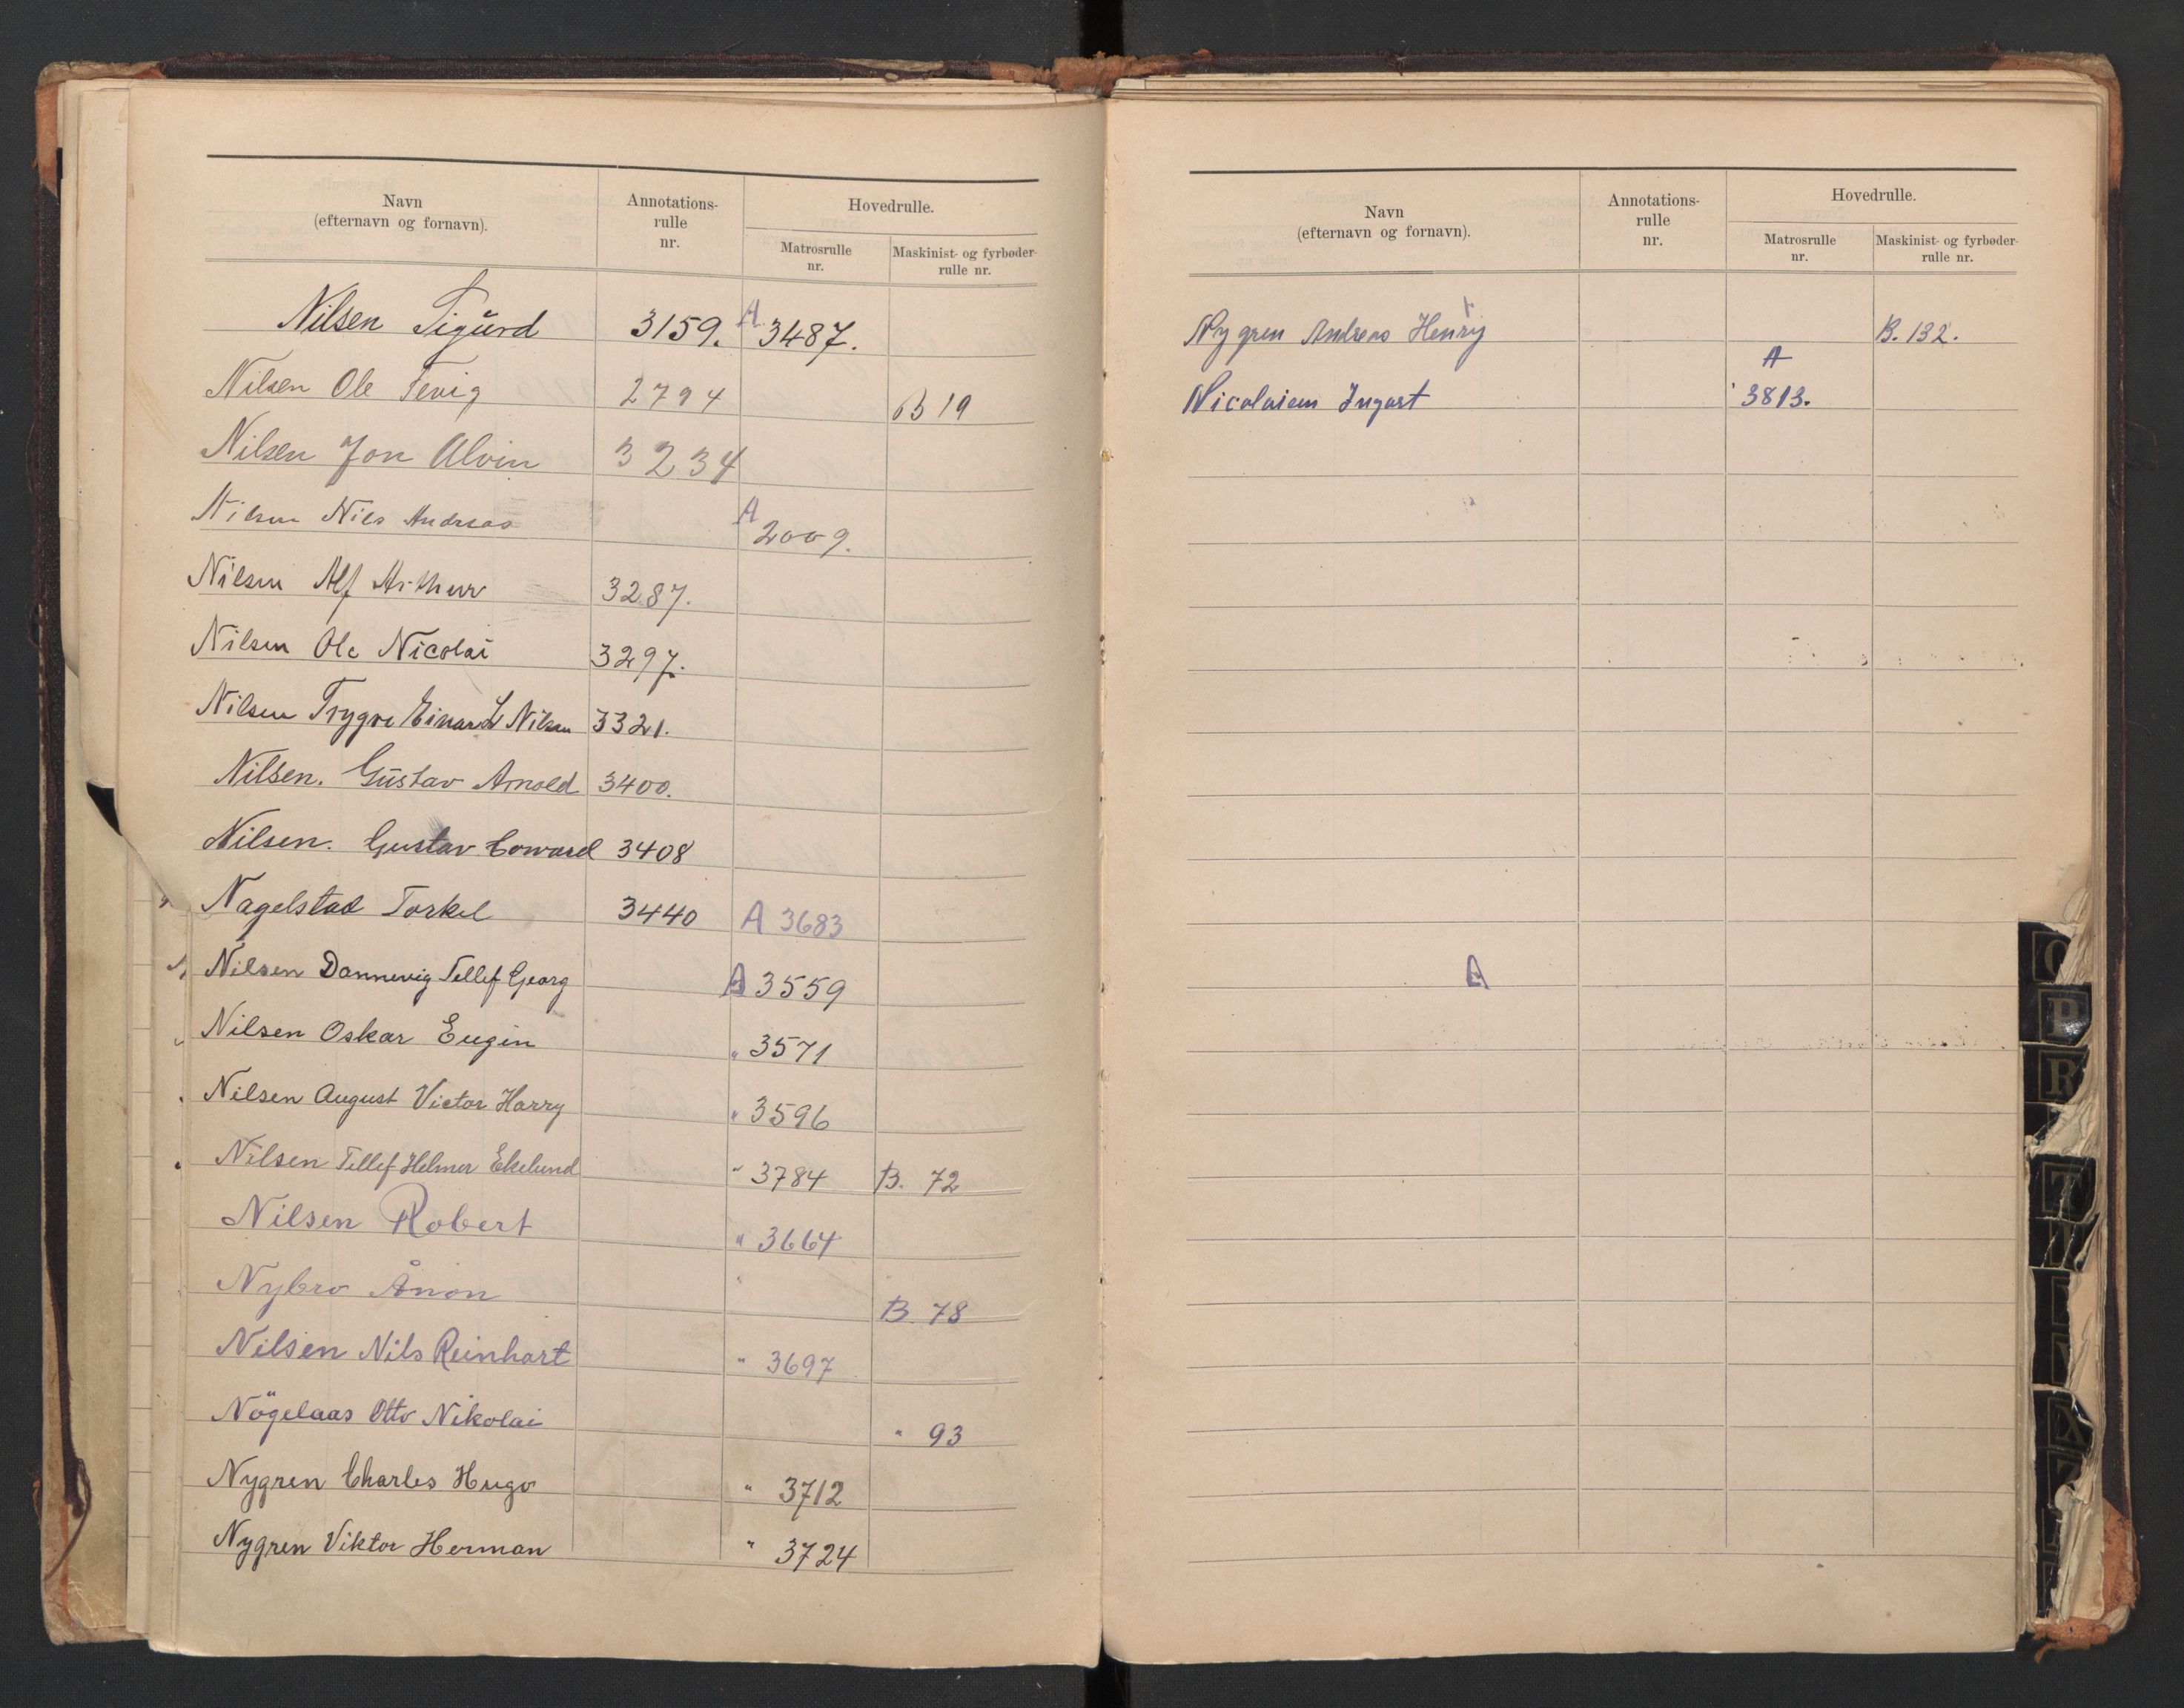 Navn
(efternavn og fornavn).
Annotations-
rulle
nr.
Hovedrulle.
Matrosrulle
nr.
Maskinist- og fyrbøder-
rulle nr.
Nilsen Sigurd 3159. A 3487.
Nilsen Ole Fevig 2794 B 19
Nilsen Jon Alvin 3234
Nilsen Nils Andreas A 2009.
Nilsen Alf Arthur 3287.
Nilsen Ole Nicolai 3297.
Nilsen Trygve Einar L Nilsen 3321.
Nilsen. Gustav Arnold 3400.
Nilsen. Gustav Edward 3408
Nagelstad Torkel 3440 A 3683
Nilsen Dannevig Tellef Georg A 3559
Nilsen Oskar Eugin " 3571
Nilsen August Victor Harry " 3596
Nilsen Tellef Helmer Ekelund " 3784 B. 72
Nilsen Robert " 3664
Nybro Ånon " B. 78
Nilsen Nils Reinhart " 3697
Nögelaas Otto Nikolai " 93
Nygren Charles Hugo " 3712
Nygren Viktor Herman " 3724
Navn
(efternavn og fornavn).
Annotations-
rulle
nr.
Hovedrulle.
Matrosrulle
nr.
Maskinist- og fyrbøder-
rulle nr.
Nygren Andreas Henry B. 132.
Nicolaisen Ingart A 3813.
A
P
R
T
X